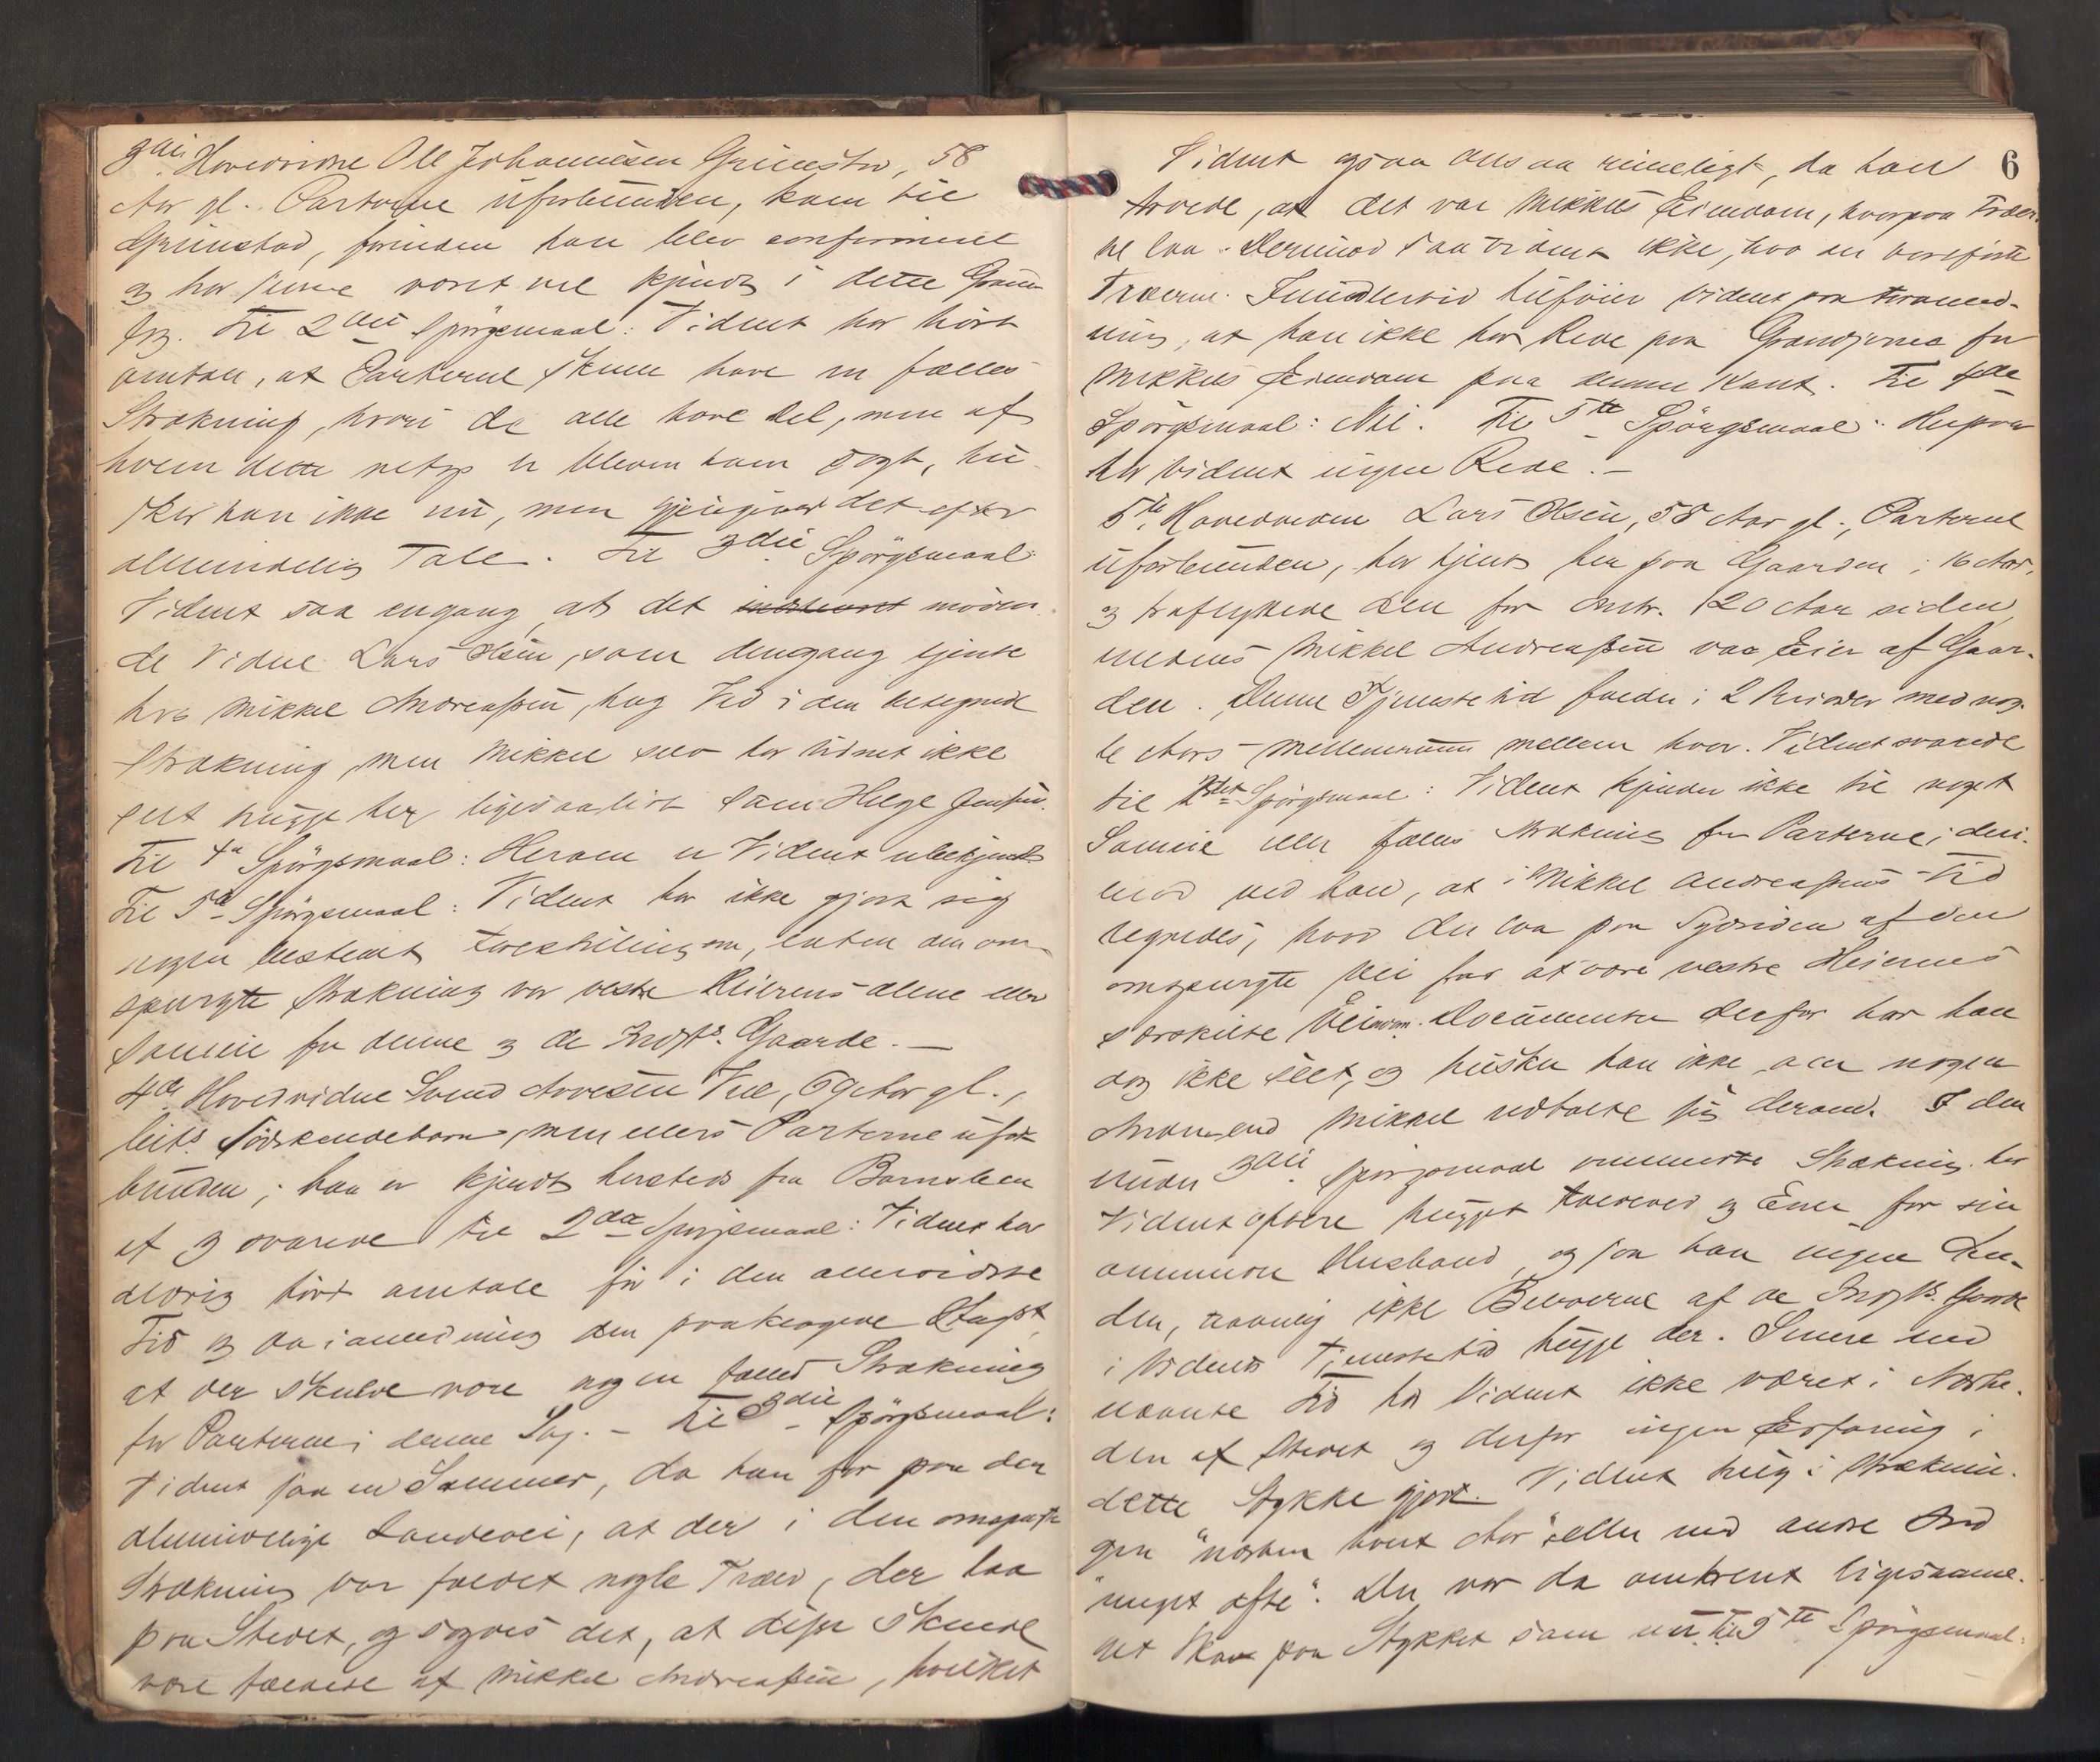 3die Hovedvidne Ole Johannesen Grimstad, 58
Aar gl. Parterne uforbunden, kom til
Grimstad, forinden han blev confirmeret
og har senere været vel kjendt i dette
Til 2det Spörgsmaal: Vidnet har hört
omtale, at Parterne skulle have en fælles
Strækning, hvori de alle have del, men af
hvem dette netop er bleven ham sagt, hu-
sker han ikke nu, men gjengiver det efter
almindelig Tale. Til 3die Spörgsmaal:
Vidnet saa engang at det möden-
de Vidne Lars Olsen, som dengang tjente
hos Mikkel Andreassen, hug Ved i den betegnede
Strækning, men Mikkel selv har Vidnet ikke
seet hugge her ligesaalidt som Helge Jensen.
Til 4de Spörgsmaal: Herom er Vidnet ubekjendt
Til 5te Spörgsmaal: Vidnet har ikke gjort sig
nogen bestemt Forestilling om, enten den om-
spurgte Strækning var vestre Heierens alene eller
Sameie for denne og de Gaarde. —
4de Hovedvidne Svend 69 Aar gl.,
Södskendebarn, men ellers Parterne ufor-
bunden; han er kjendt hersteds fra Barnsben
af og svarede til 2det Spörgsmaal: Vidnet har
aldrig hört omtale för i den allersidste
Tid og da i anledning den paaklagede Hugst,
at der skulde være nogen fælles Strækning
for Parterne i denne Sag. – Til 3die Spörgsmaal:
Vidnet saa en Sommer, da han for paa den
almindelige Landevei, at der i den omspurgte
Strækning var fældet nogle Træer, der laa
paa Stedet, og sagdes det, at disse skulde
være fældede af Mikkel Andreassen, hvilket
6
Vidnet ogsaa ansaa rimeligt, da han
troede, at det var Mikkels Eiendom, hvorpaa Træer-
ne laa. Derimod saa Vidnet ikke, hvo der bortförte
Træerne. Imidlertid tilföier Vidnet paa Foranled-
ning, at han ikke har Rede paa Grændserne for
Mikkels Eiendom paa denne Kant. Til 4de
Spörgsmaal: Nei. Til 5te Spörgsmaal: Herpaa
har Vidnet ingen Rede. –
5te Hovedvidne Lars Olsen, 58 Aar gl., Parterne
uforbunden, har tjent her paa Gaarden i 16 Aar,
og fraflyttede den for omtr. 20 Aar siden,
medens Mikkel Andreassen var Eier af Gaar-
den. Denne Tjenestetid faldt i 2 Perioder med nog-
le Aars mellemrum mellem hver. Vidnet svarede
til 2det Spörgsmaal: Vidnet kjender ikke til noget
Sameie eller fælles Strækning for Parterne; deri-
mod ved han, at i Mikkel Andreassens Tid
regnedes, hvad der laa paa Sydsiden af den
omspurgte Vei for at være vestre Heierens
særskilte Eiendom. Documenter derfor har han
dog ikke seet, og husker han ikke, om nogen
Anden end Mikkel udtalte sig derom. I den
under 3die Spörgsmaal ommeldte Strækning har
Vidnet oftere hugget og Ener for sin
ommeldte Husbond, og saa han ingen An-
den, navnlig ikke Beboerne af de Gaarde
i Vidnets Tjenestetid hugge der. Senere end
nævnte Tid har Vidnet ikke været i Nærhe-
den af Stedet og derfor ingen Erfaring i
dette Stykke gjort. Vidnet hug i Stræknin-
gen "næsten hvert Aar" eller med andre Ord
"meget ofte". Der var da omtrent ligesaame-
get Skov paa Stykket som nu. Til 5te Spörgsmaal: